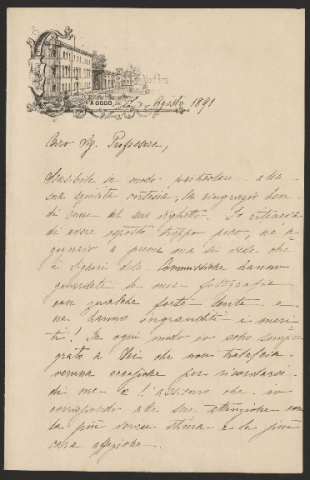 Agosto 1891
Caro Sig. Professore,
Sensibile in modo particolare alla
sua squisita cortesia, La ringrazio
di cuore del suo biglietto. Io
di avere esposto troppo poco, nè
a premi ma si vede che
i Signori della Commissione hanno
guardate le mie fotografie
con qualche forte lente e
ne hanno ingranditi i meri-
ti! In ogni modo io sono sempre
grato a Lei che non tralascia
veruna occasione per ricordarsi
di me e l'assicuro che io
corrispondo alle sue attenzioni con
la più sincera stima e la più
cara affezione.